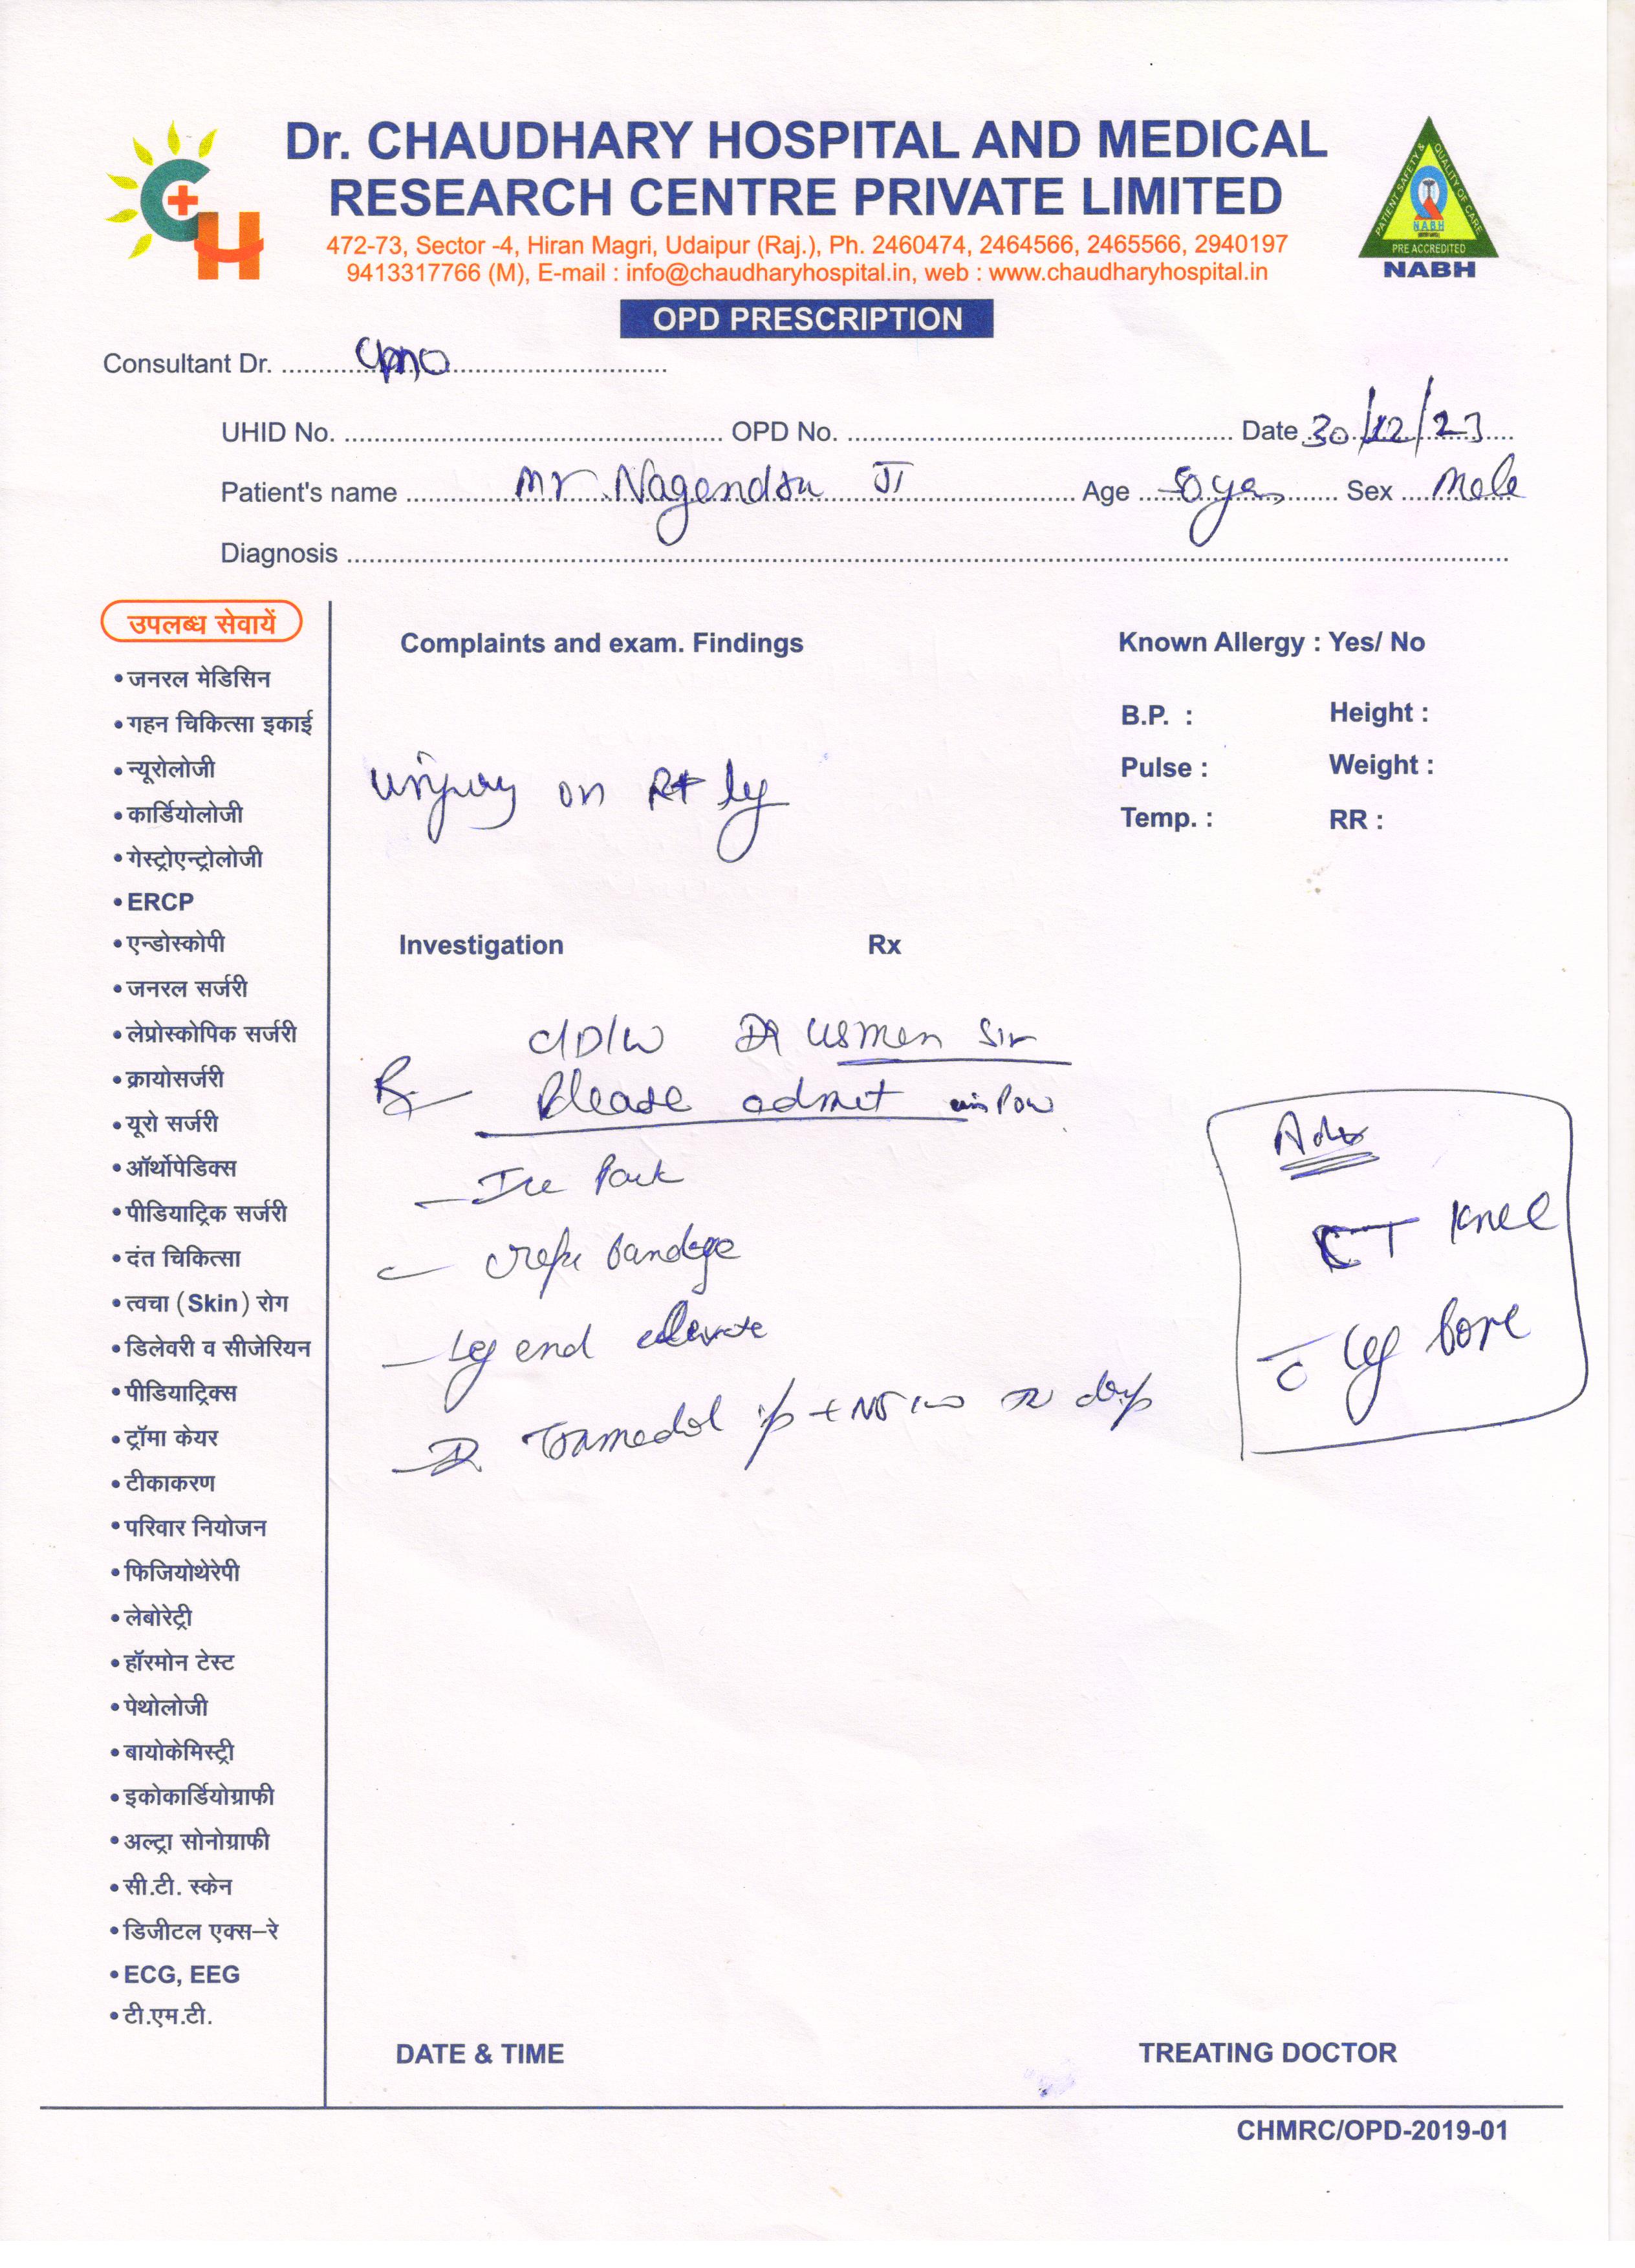 Dr. CHAUDHARY HOSPITAL AND MEDICAL
RESEARCH CENTRE PRIVATE LIMITED
472-73, Sector -4, Hiran Magri, Udaipur (Raj.), Ph. 2460474, 2464566, 2465566, 2940197
9413317766 (M), E-mail : info@chaudharyhospital.in, web : www.chaudharyhospital.in
PATIENT SAFETY & QUALITY OF CARE
NABH
PRE ACCREDITED
NABH
OPD PRESCRIPTION
Consultant Dr. CMO
UHID No. OPD No. Date 30/12/23
Patient's name Mr Nagendra Ji Age 50 yrs Sex Male
Diagnosis
उपलब्ध सेवायें
• जनरल मेडिसिन
• गहन चिकित्सा इकाई
• न्यूरोलोजी
• कार्डियोलोजी
• गेस्ट्रोएन्ट्रोलोजी
• ERCP
• एन्डोस्कोपी
• जनरल सर्जरी
• लेप्रोस्कोपिक सर्जरी
• क्रायोसर्जरी
• यूरो सर्जरी
• ऑर्थोपेडिक्स
• पीडियाट्रिक सर्जरी
• दंत चिकित्सा
• त्वचा (Skin) रोग
• डिलेवरी व सीजेरियन
• पीडियाट्रिक्स
• ट्रॉमा केयर
• टीकाकरण
• परिवार नियोजन
• फिजियोथेरेपी
• लेबोरेट्री
• हॉरमोन टेस्ट
• पेथोलोजी
• बायोकेमिस्ट्री
• इकोकार्डियोग्राफी
• अल्ट्रा सोनोग्राफी
• सी.टी. स्केन
• डिजीटल एक्स-रे
• ECG, EEG
• टी.एम.टी.
Complaints and exam. Findings
Known Allergy : Yes/ No
B.P. : Height :
Pulse : Weight :
Temp. : RR :
injury on Rt leg
Investigation Rx
C/D/W Dr Usman Sir
Rx Please admit
- Ice Pack
- crepe bandage
- Leg end elevate
Tramadol + NS drip
Adv
CT Knee
c̄ leg bone
DATE & TIME TREATING DOCTOR
CHMRC/OPD-2019-01